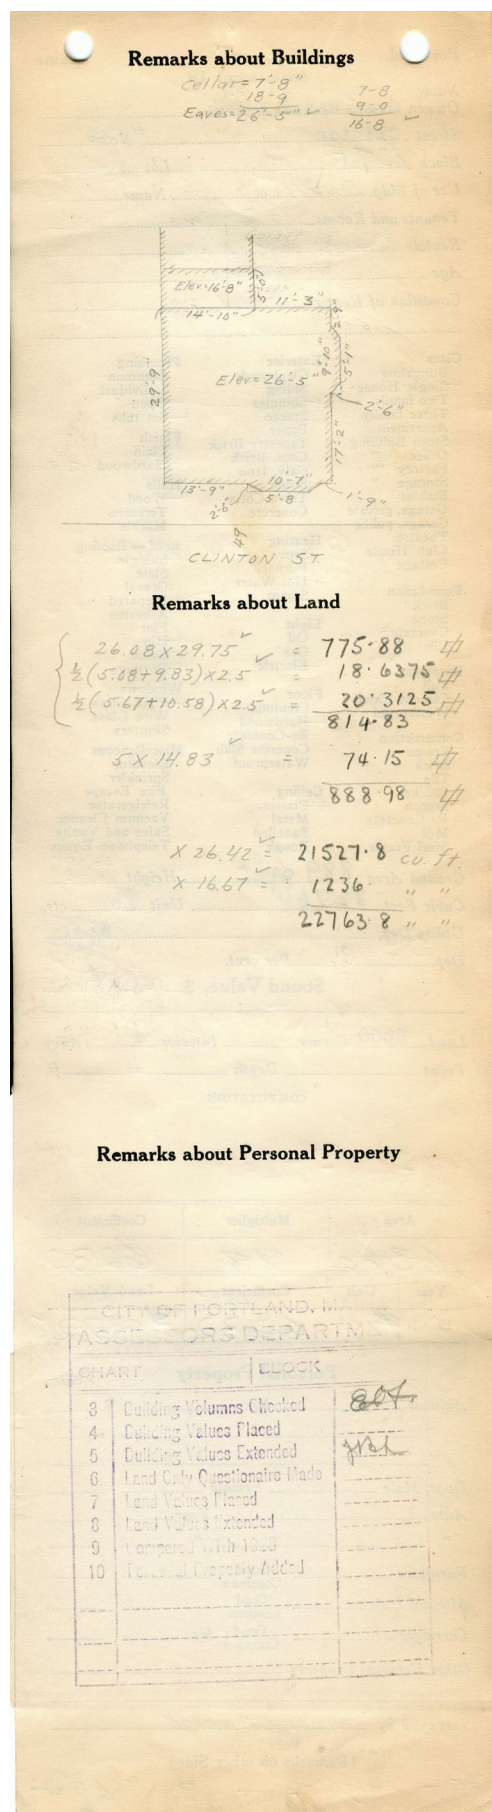 Remarks about Buildings
Cellar = 7'-8"
18-9
Eaves = 26'-5"
7-8
9-0
16-8
Elev=16'-8"
5'-0"
11'-3"
14'-10"
2'-9"
9'-10"
5'-1"
29'-9"
Elev= 26'-5"
2'-6"
17'-2"
13'-9"
10'-7"
5'-8
2'-6"
1'-9"
49
CLINTON ST.
Remarks about Land
26.08 x 29.75 = 775.88
½(5.08+9.83)x2.5 = 18.6375
½(5.67+10.58)x2.5 = 20.3125
814.83
5 x 14.83 = 74.15
888.98
x 26.42 = 21527.8 cu. ft
x 16.67 = 1236. " "
22763.8 " "
Remarks about Personal Property
CITY OF PORTLAND,
ASSESSORS DEPARTM
CHART BLOCK
3 Building Volumns Checked
4 Building Values Placed
5 Building Values Extended
6 Land Only Questionaire Made
7 Land Values Placed
8 Land Values Extended
9 Compared With 1923
10 Personal Property Added